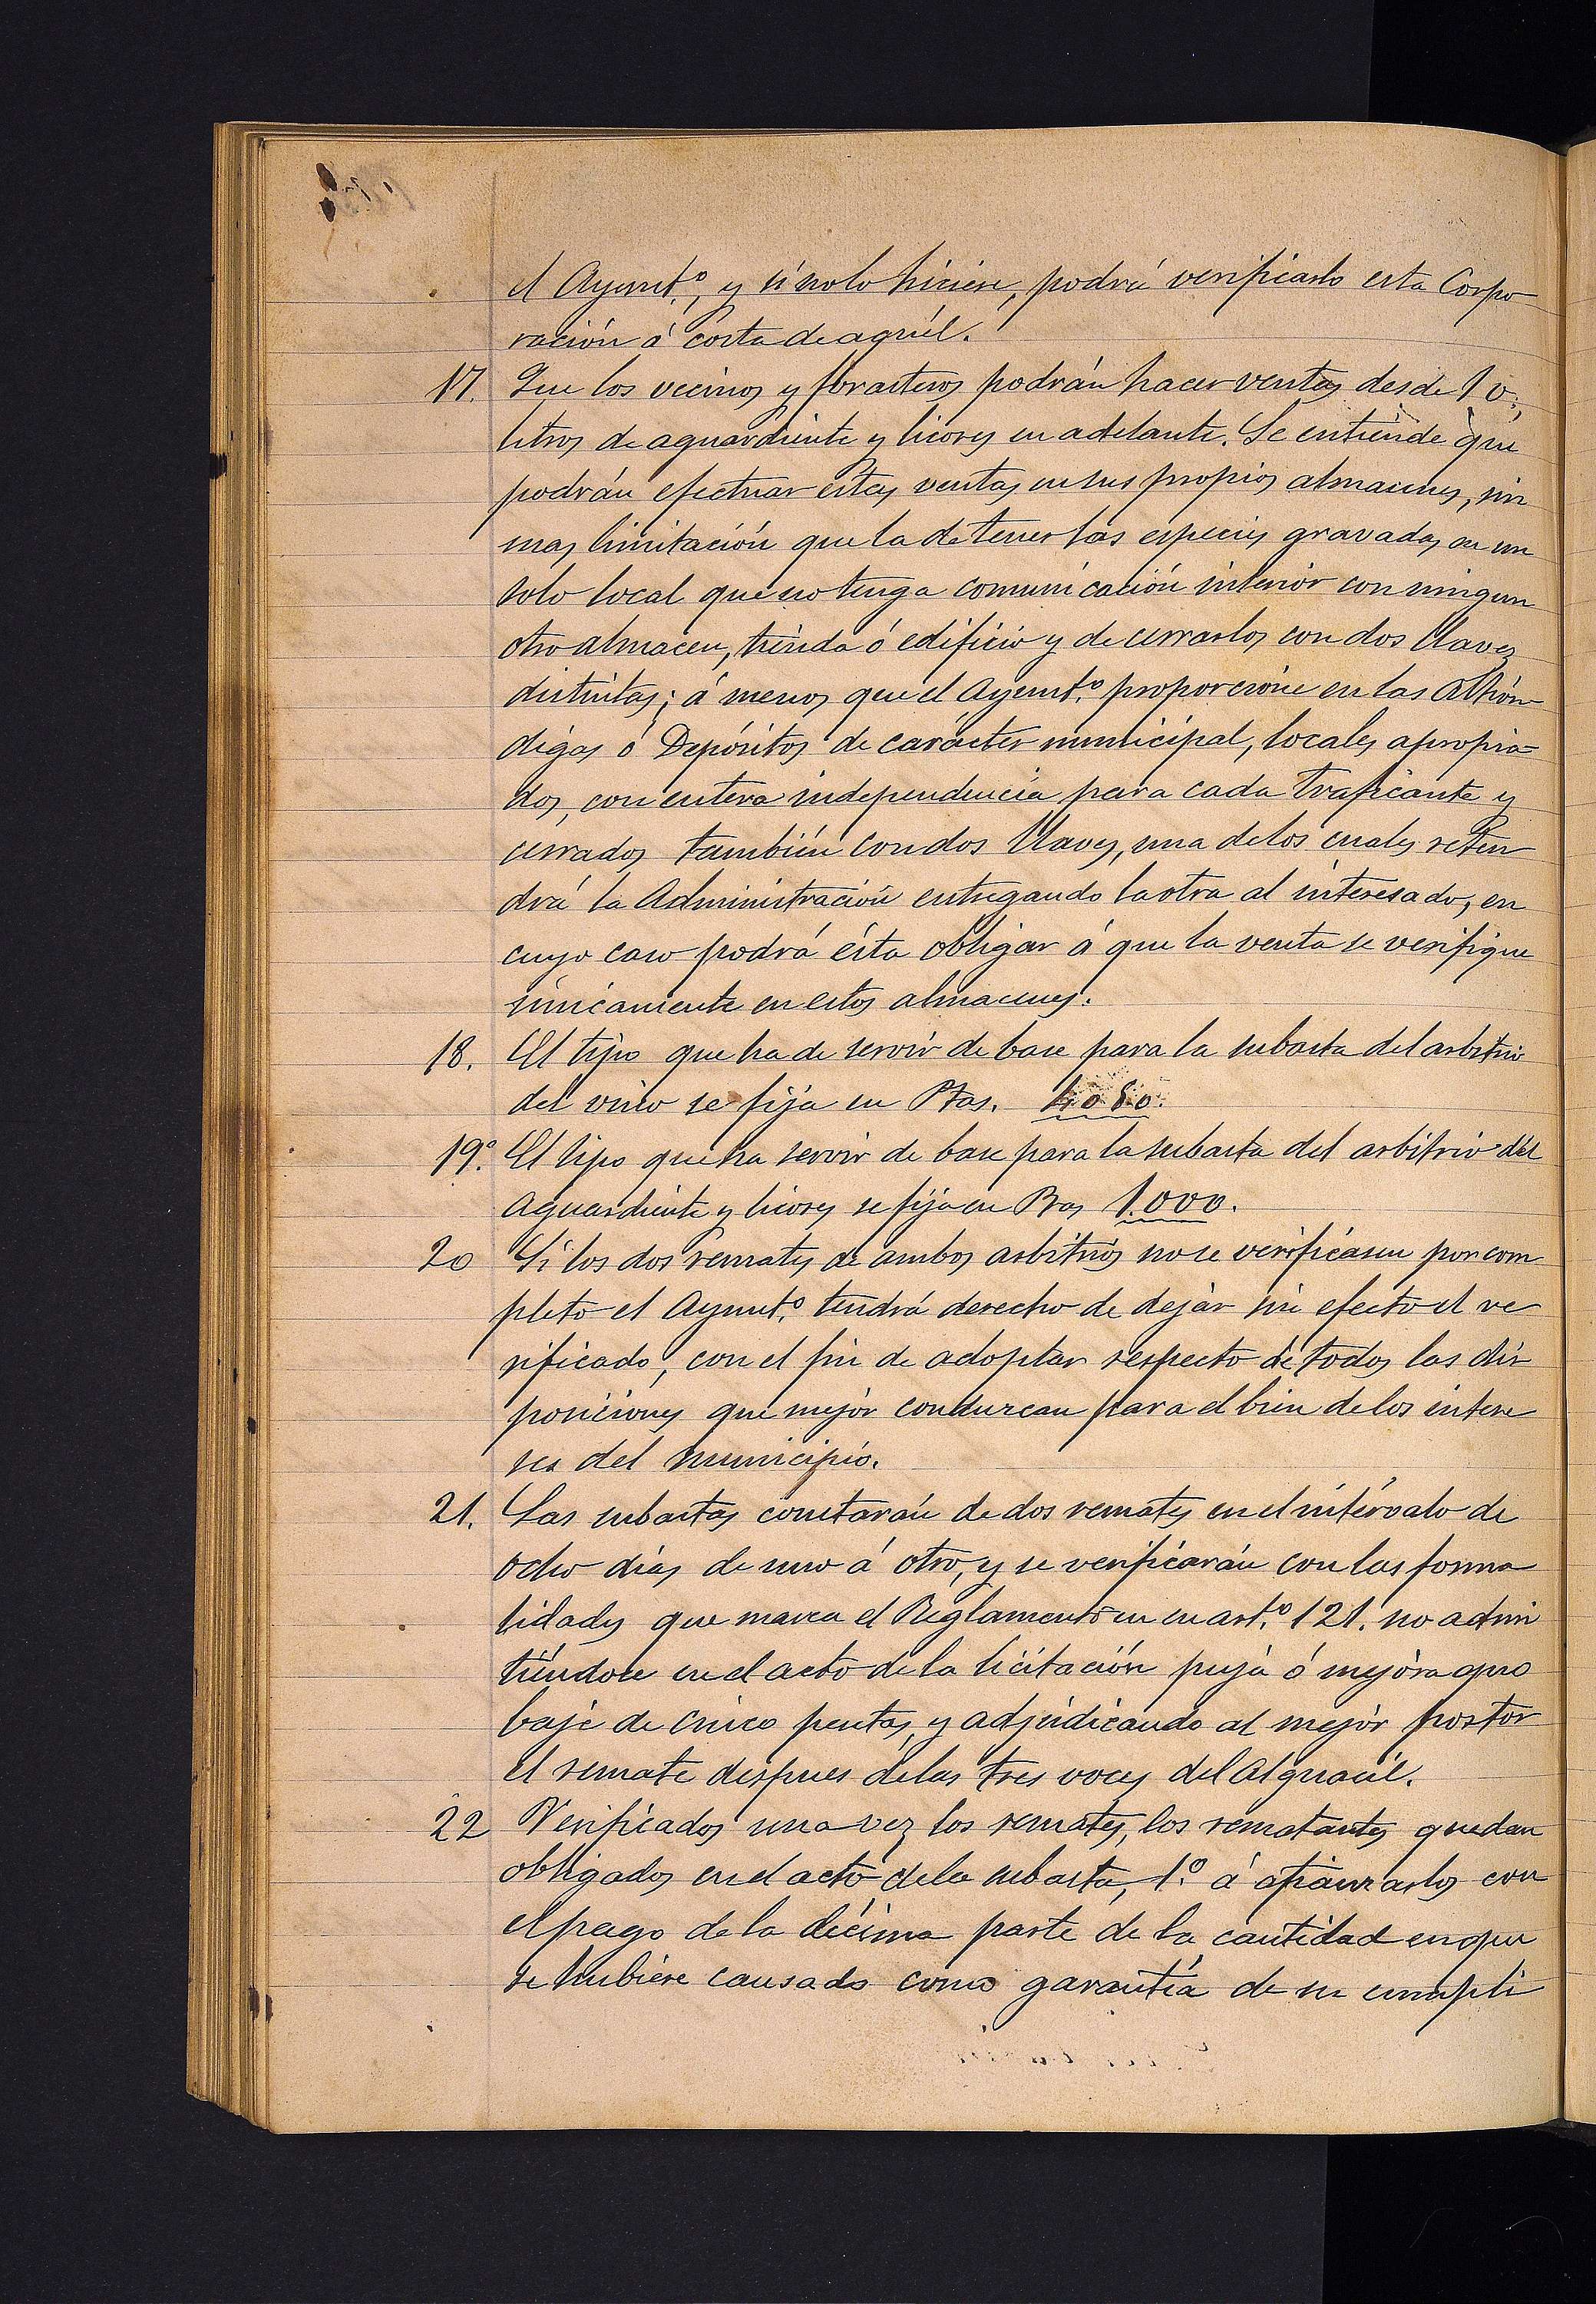 el Ayunt.º, y si no lo hiciere, podrá verificarlo esta Corpo
ración á costa de aquél.
17. Que los vecinos y forasteros podrán hacer ventas desde 10
litros de aguardiente y licores en adelante. Se entiende que
podrán efectuar estas ventas en sus propios almacenes, sin
mas limitación que la de tener las especies gravadas en un
solo local que no tenga comunicación interior con ningun
otro almacen, tienda ó edificio y de cerrarlos con dos llaves
distintas; á menos que el Ayunt.º proporcione en las Alhón
digas ó Depósitos de carácter municipal, locales apropia-
dos, con entera independencia para cada traficante y
cerrados también con dos llaves, una de los cuales reten
drá la Administración entregando la otra al interesado, en
cuyo caso podrá ésta obligar á que la venta se verifique
únicamente en estos almacenes.
18. El tipo que ha de servir de base para la subasta del arbitrio
del vino se fija en Ptas. 4080.
19.º El tipo que ha servir de base para la subasta del arbitrio del
aguardiente y licores se fija en Ptas 1.000.
20 Si los dos remates de ambos arbitrios no se verificasen por com
pleto el Ayunt.º tendrá derecho de dejar sin efecto el ve
rificado, con el fin de adoptar respecto de todos las dis
posiciones que mejor conduzcan para el bien de los intere
ses del municipio.
21. Las subastas constarán de dos remates en el intérvalo de
ocho días de uno á otro, y se verificarán con las forma
lidades que marca el Reglamento en su art.º 121. no admi
tiéndose en el acto de la licitación puja ó mejora que
baje de cinco pesetas, y adjudicando al mejor postor
el remate despues de las tres voces del Alguacil.
22 Verificados una vez los remates, los rematantes quedan
obligados en el acto de la subasta, 1.º á afianzarlos con
el pago de la décima parte de la cantidad en que
se hubiere causado como garantía de su cumpli